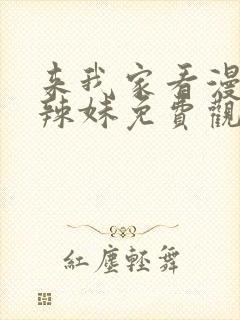 来我家看漫
辣妹免費觀
紅塵輕舞